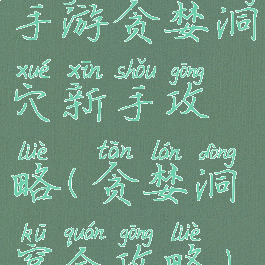 手游贪婪洞
xué xīn shǒu gōng
穴新手攻
lüè tān lán dòng
略(贪婪洞
kū quán gōng lüè
窟全攻略)